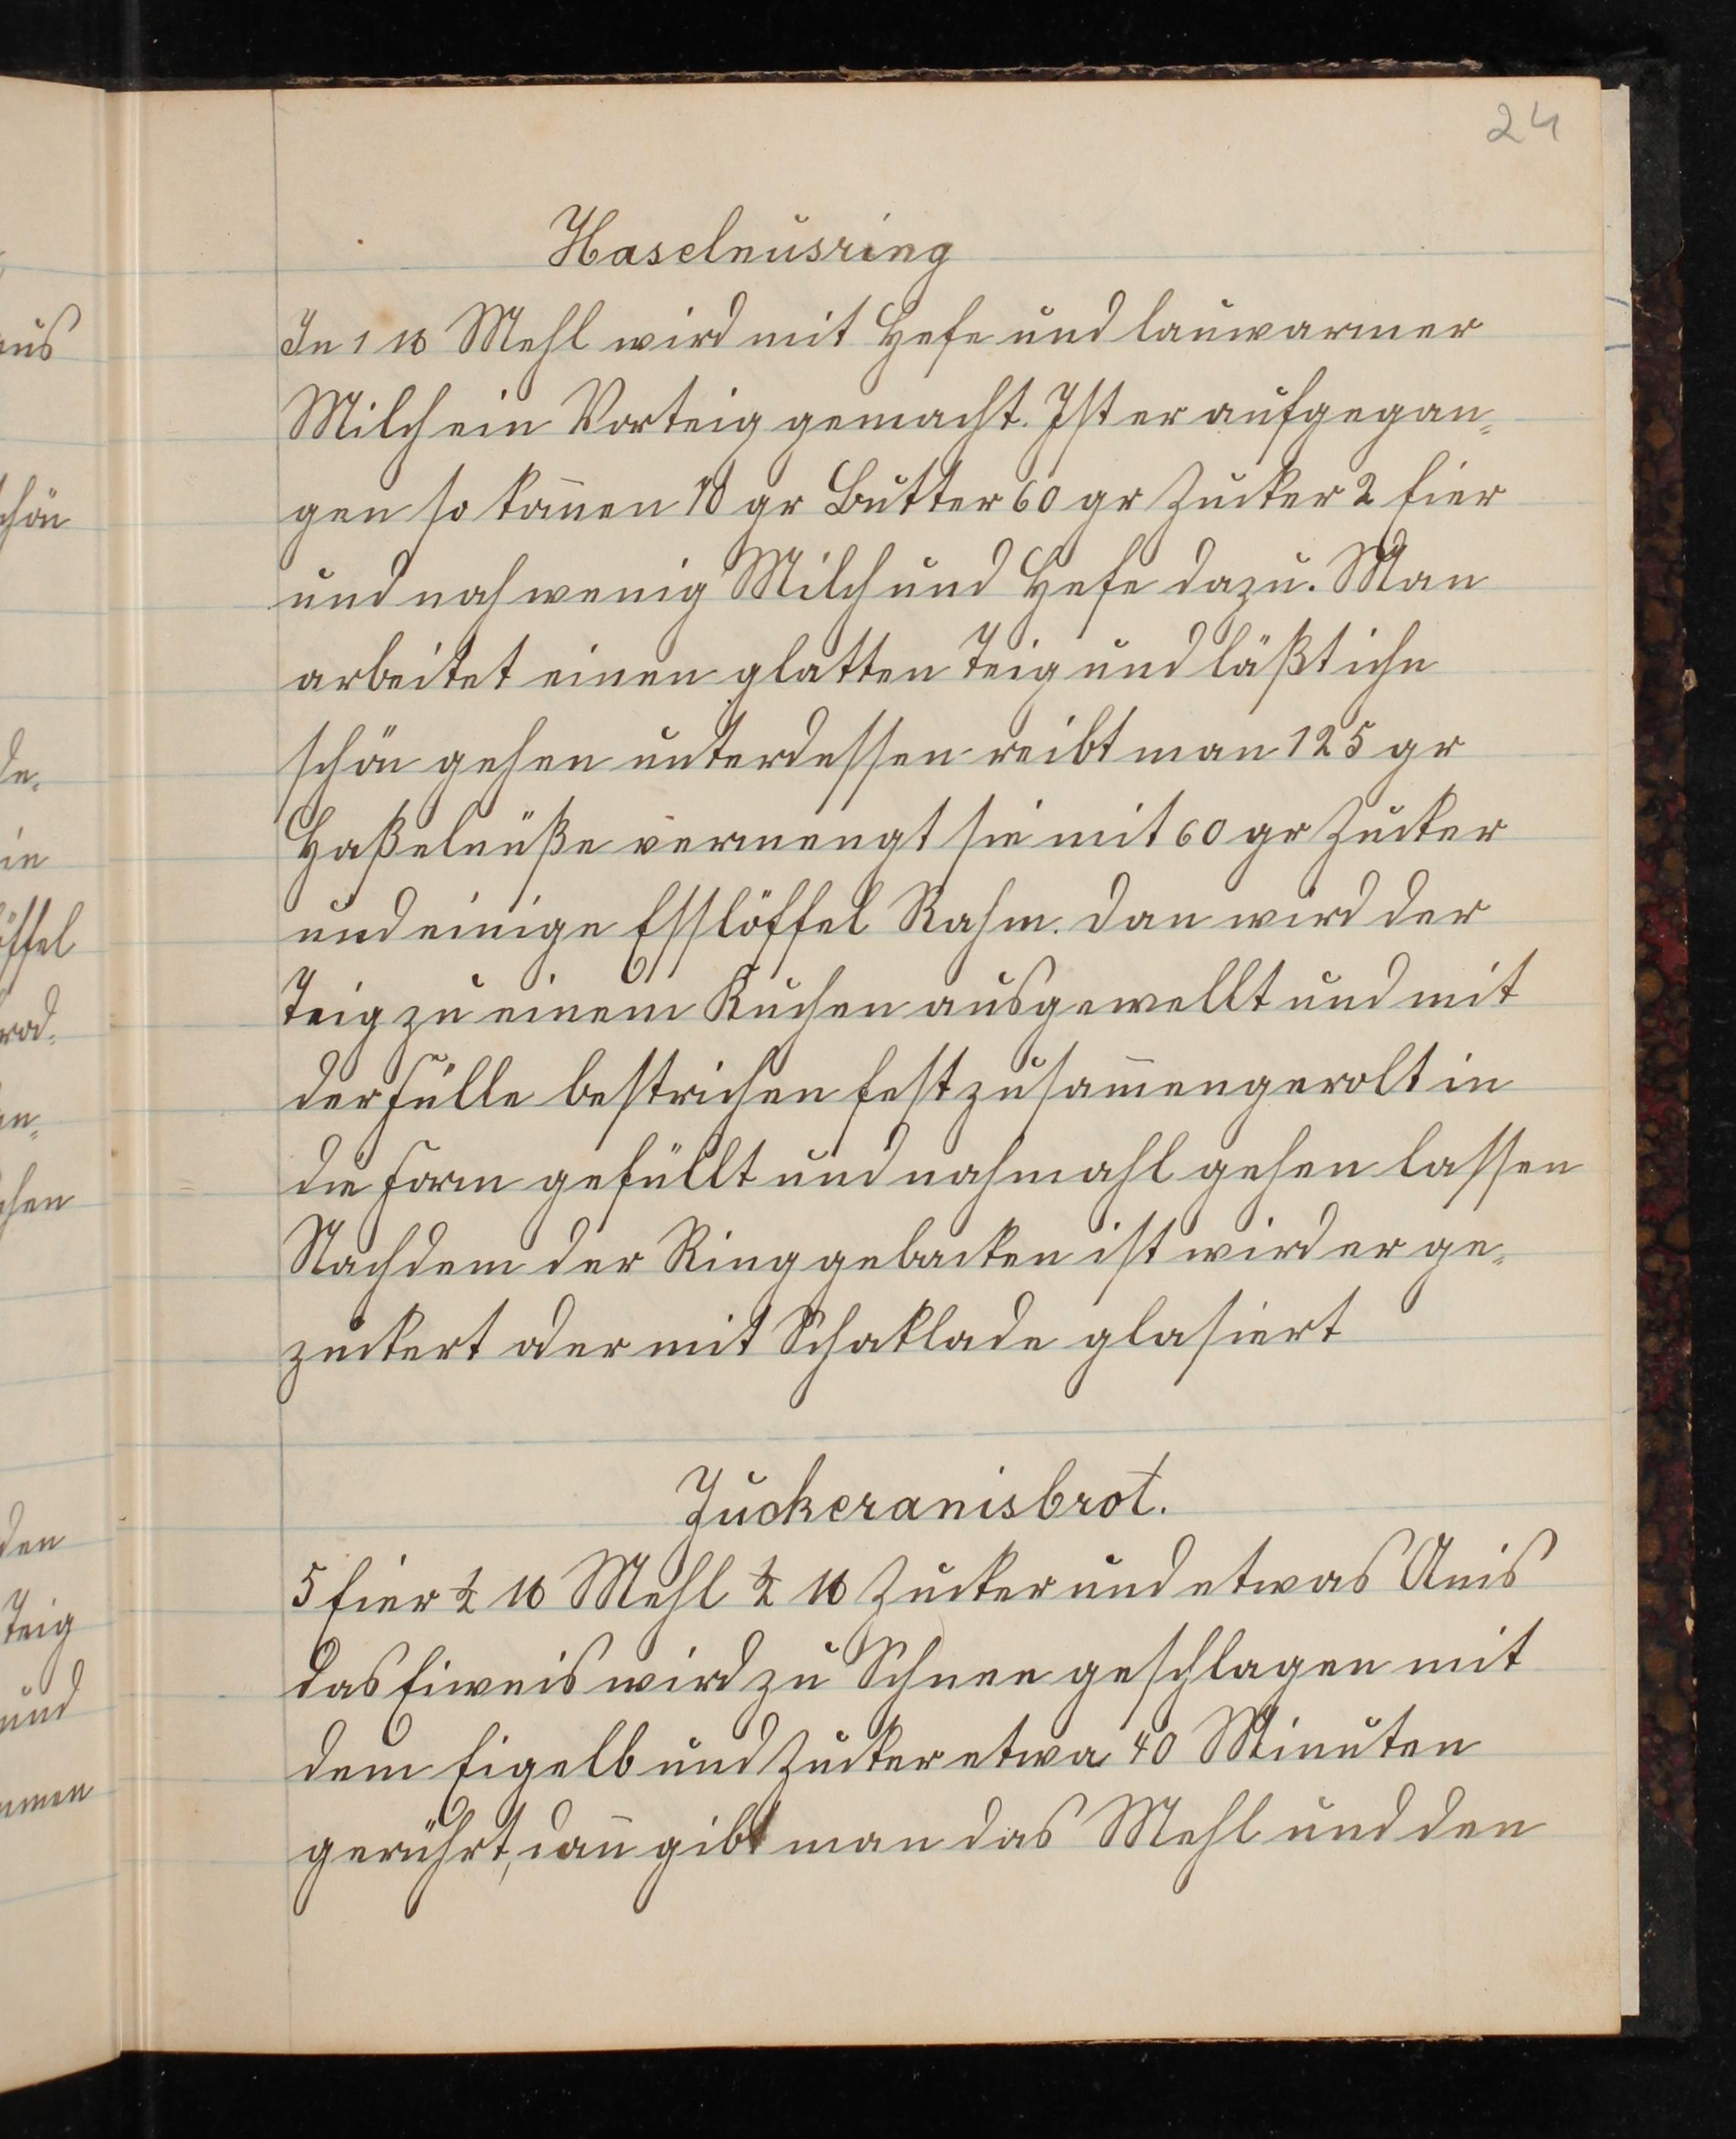 24
Haselnusring
In 1 ℔ Mehl wird mit Hefe und lauwarmer
Milch ein Vorteig gemacht. Ist er aufgegan„
gen so kom̄en 70 gr Butter 60 gr Zucker 2 Eier
und noch wenig Milch und Hefe dazu. Man
arbeitet einen glatten Teig und läßt ihn
schön gehen unterdessen reibt man 125 gr
Haßelnüße vermengt sie mit 60 gr Zucker
und einige Esslöffel Rahm. Dan wird der
Teig zu einem Kuchen ausgewellt und mit
der Fülle bestrichen fest zusam̄engerolt in
die Form gefüllt und nochmahl gehen lassen
Nachdem der Ring gebacken ist wird er ge„
zuckert oder mit Schoklade glasiert
Zuckeranisbrot.
5 Eier ½ ℔ Mehl ½ ℔ Zucker und etwas Anis
das Eiweis wird zu Schnee geschlagen mit
dem Eigelb und Zucker etwa 40 Minuten
gerührt, dan̄ gibt man das Mehl und den
aus
schön
de„
in
öffel
rod„
en„
chen
den
Teig
und
mmen